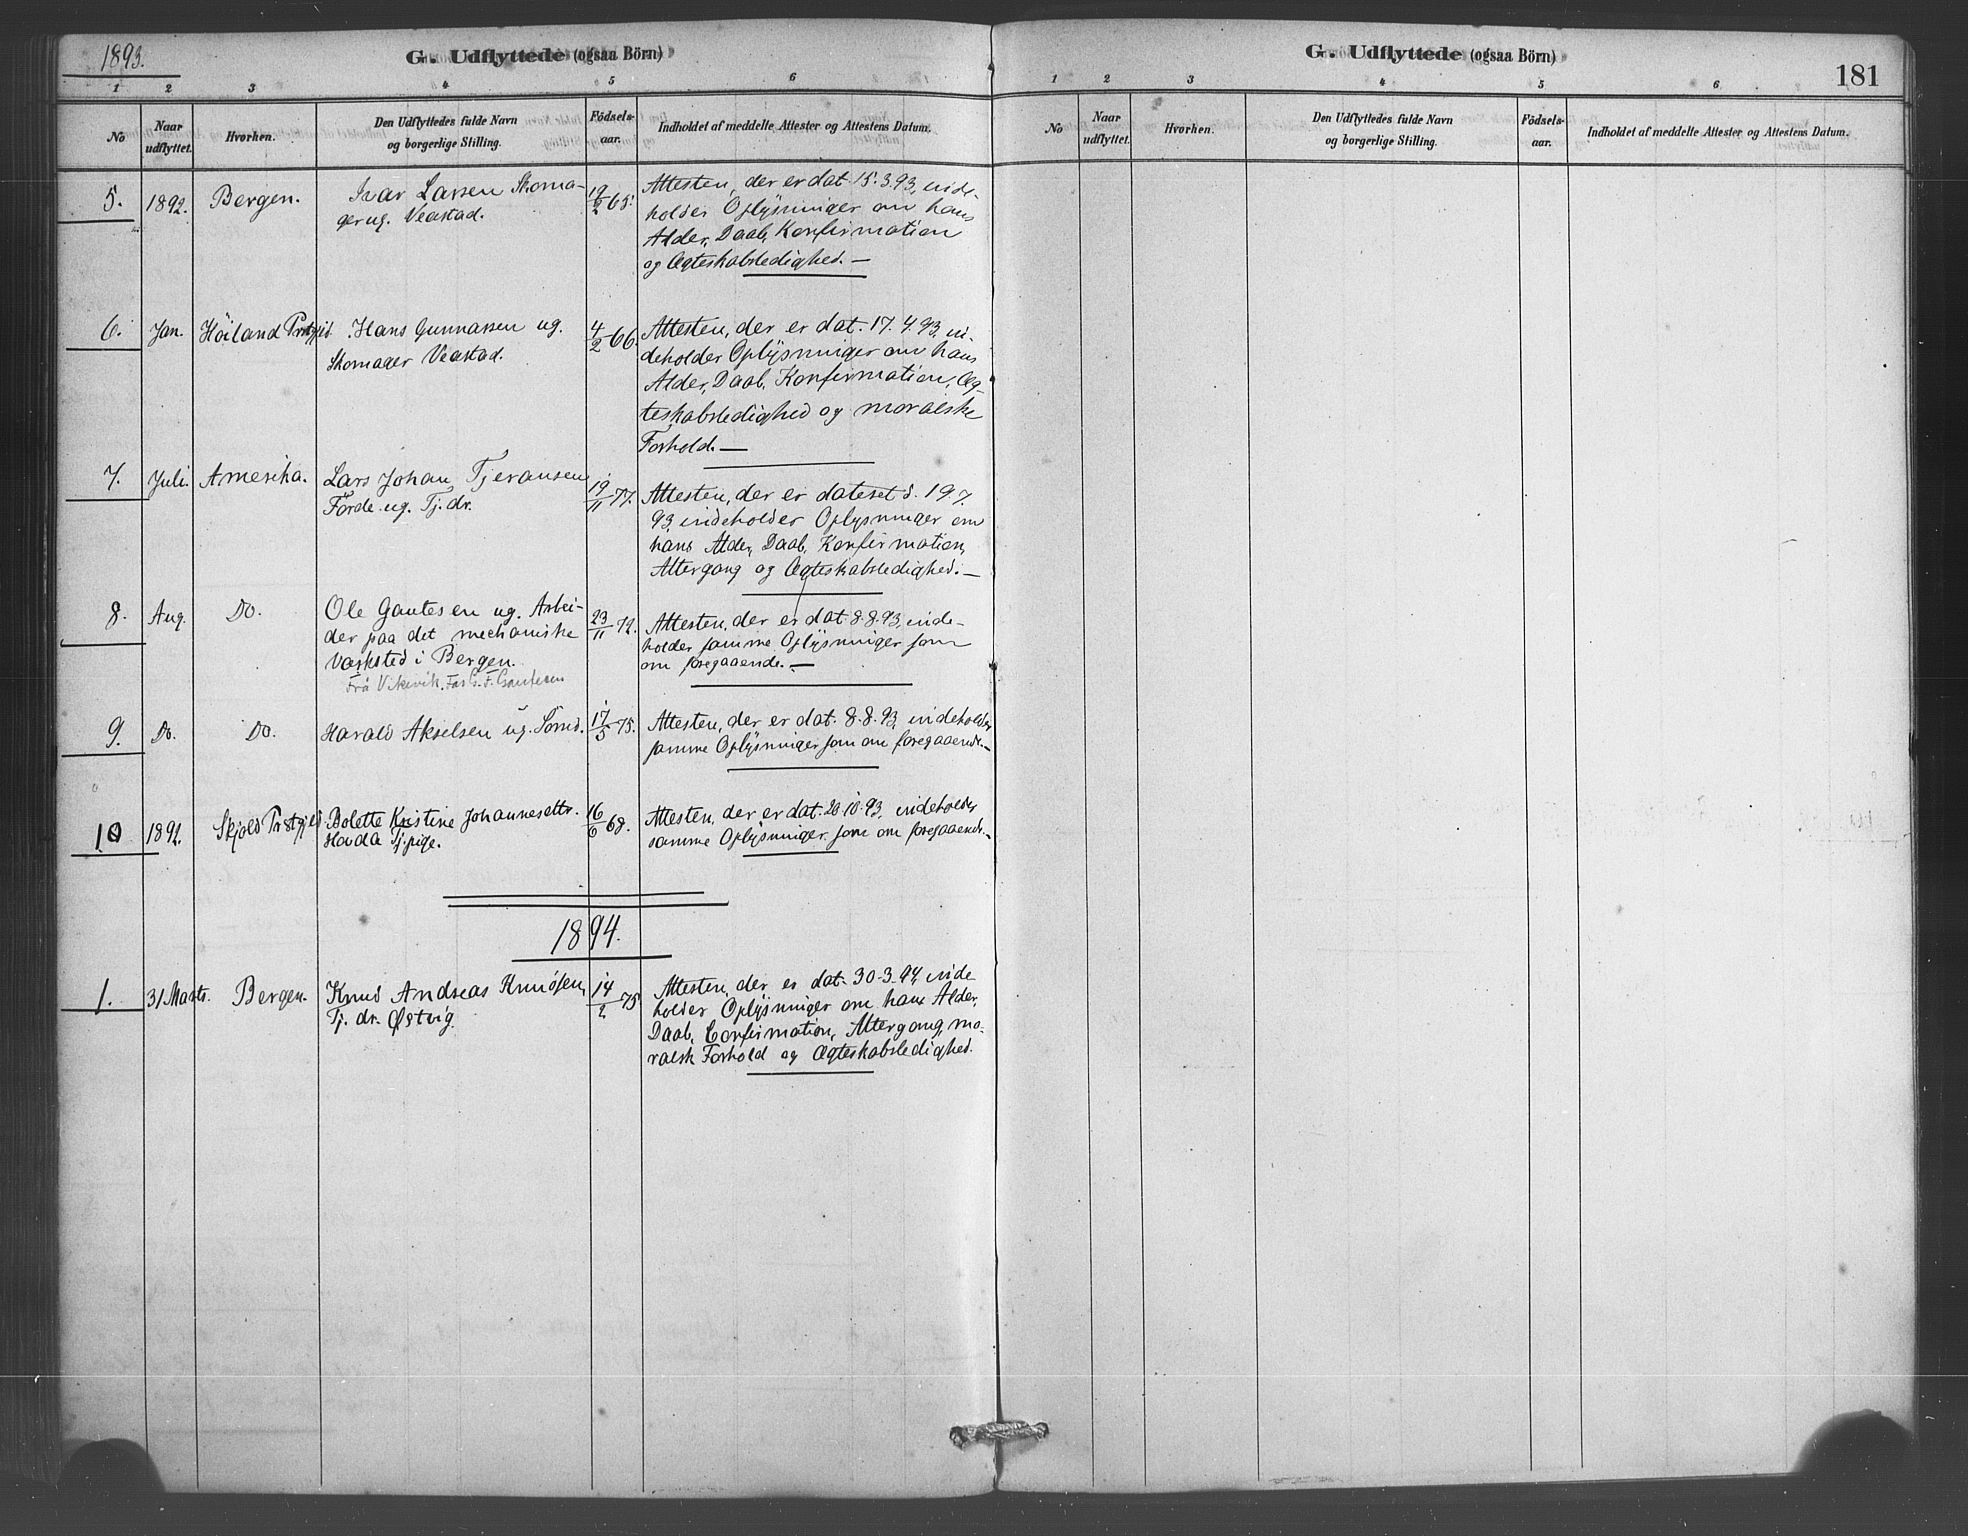 1893.
G. Udflyttede (ogsaa Börn)
1 2 3 4 5 6
No
Naar udflyttet.
Hvorhen.
Den Udflyttedes fulde Navn
og borgerlige Stilling.
Födsels-
aar.
Indholdet af meddelte Attester og Attestens Datum.
5. 1892. Bergen.
Ivar Larsen Skoma-
ger ug. Veastad.
19/2 65.
Attesten, der er dat. 15.3.93, inde-
holder Oplysninger om hans
Alder, Daab, Konfirmation
og Ægteskabsledighed. —
6. Jan. Höiland Prstgjld.
Hans Gunnarsen ug.
Skomager Veastad.
4/2 66.
Attesten, der er dat. 17.4.93, in-
deholder Oplysninger om hans
Alder, Daab, Konfirmation, Æg-
teskabsledighed og moralske
Forhold. —
7. Juli. Amerika.
Lars Johan Tjeransen
Förde ug. Tj. dr.
19/11 77.
Attesten, der er dateret d. 19.7.
93, indeholder Oplysninger om
hans Alder, Daab, Konfirmation,
Altergang og Ægteskabsledighed. —
8. Aug. Do.
Ole Gautesen ug. Arbei-
der paa det mechaniske
Værksted i Bergen.
Frå Vikevik. Far G. F. Gautesen
23/11 72.
Attesten, der er dat. 8.8.93, inde-
holder samme Oplysninger som
om foregaaende. —
9. Do. Do.
Harald Akselsen ug. Sömd.
17/5 75.
Attesten, der er dat. 8.8.93, indeholder
samme Oplysninger som om foregaaende. —
10 1892. Skjold Prstgjeld
Bolette Kristine Johannesdttr.
Hovda Tj. pige.
16/6 68.
Attesten, der er dat. 20.10.93, indeholder
samme Oplysninger som om foregaaende. —
1894.
1. 31 Marts. Bergen.
Knud Andreas Knudsen,
Tj. dr. Østvig.
14/2 75
Attesten, der er dat. 30.3.94, inde
holder Oplysninger om hans Alder,
Daab, Confirmation, Altergang, mo-
ralsk Forhold og Ægteskabsledighed.
G. Udflyttede (ogsaa Börn)
181
1 2 3 4 5 6
No
Naar
udflyttet.
Hvorhen.
Den Udflyttedes fulde Navn
og borgerlige Stilling.
Födsels-
aar.
Indholdet af meddelte Attester og Attestens Datum.